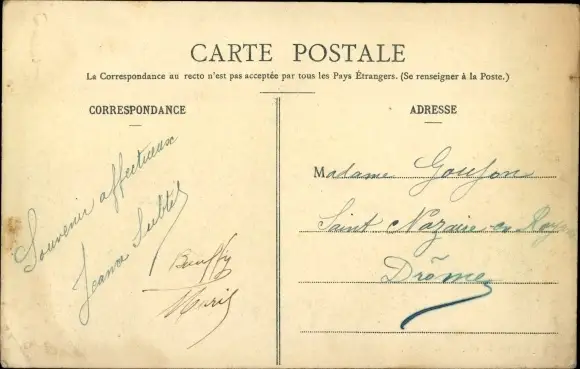 CARTE POSTALE
La Correspondance au recto n'est pas acceptée par tous les Pays Étrangers. (Se renseigner à la Poste.)
CORRESPONDANCE
Souvenir affectueux
Jeanne
Marie
ADRESSE
Madame Goujon
Saint Nazaire en Royans
Drôme